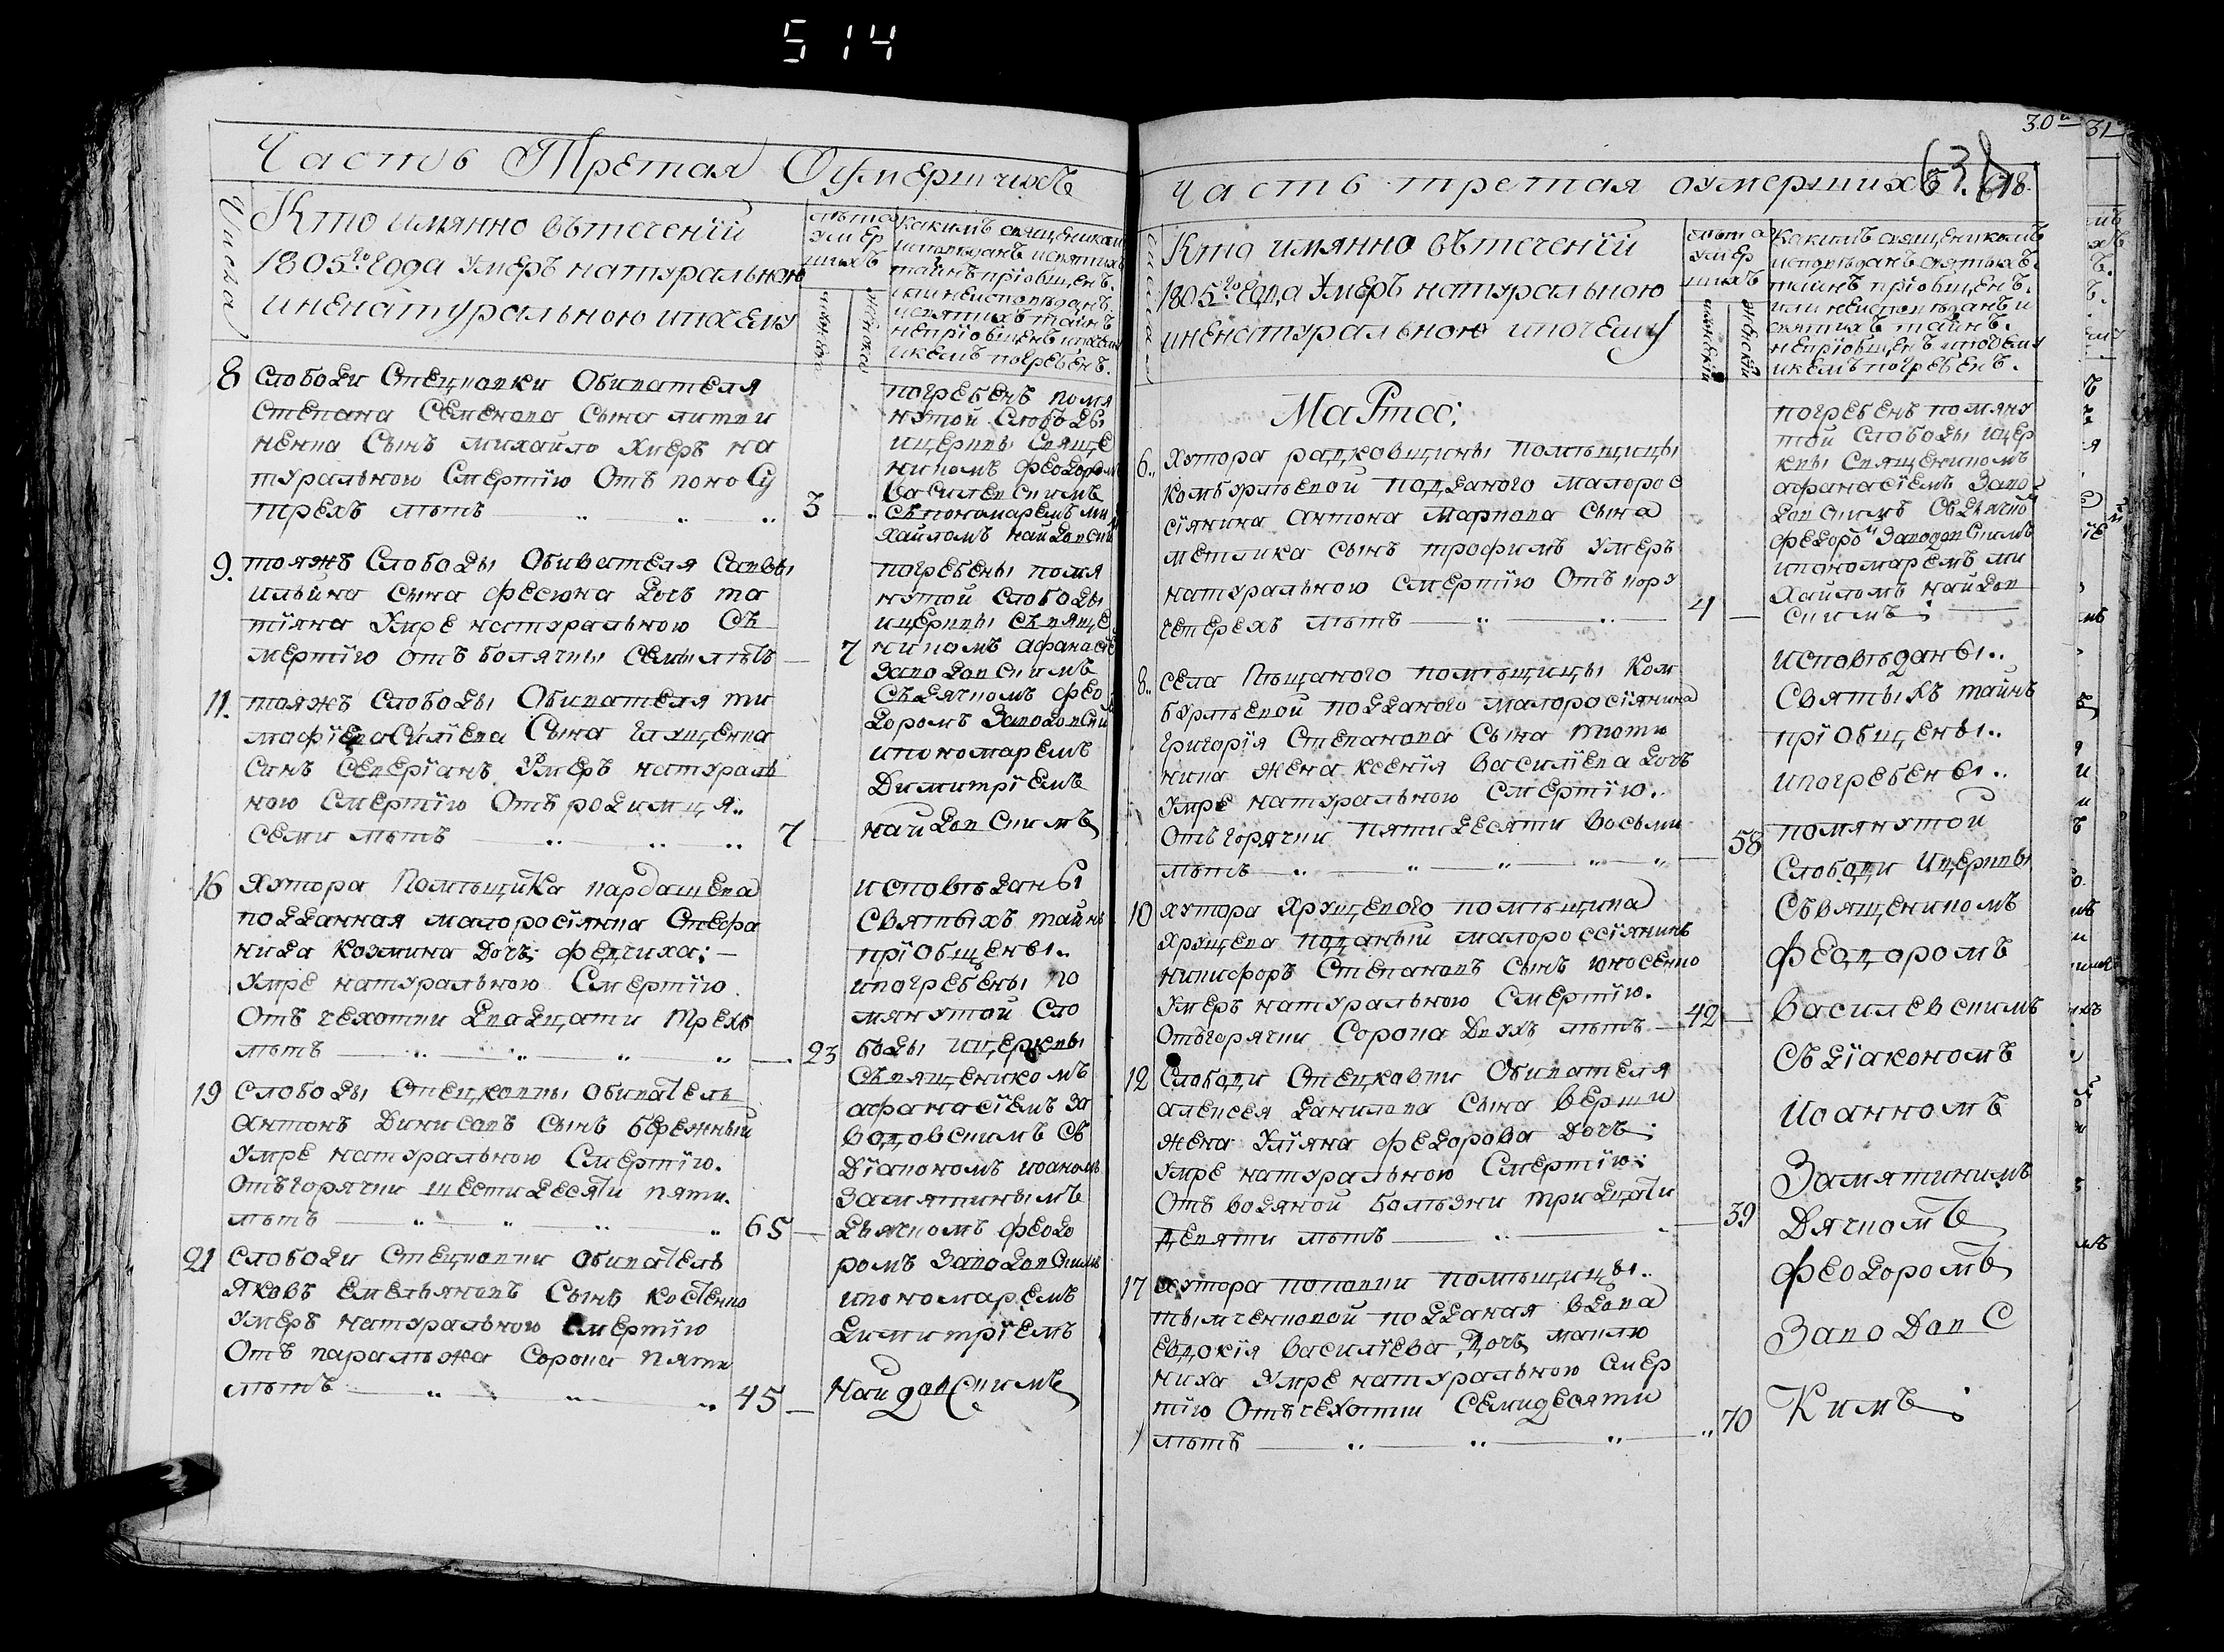 514
Часть Третая Оумершихъ
Числа
Кто имянно втеченїи
1805го Года умеръ натуральною
иненатуральною ипочему
лѣта
умер
шихъ
мужеска
женска
какимъ священикомъ
исповѣданъ исвятыхъ
тайнъ прїобщенъ.
или неисповѣданъ
исвятихъ тайнъ
непрїобщенъ ипочему
икемъ погребенъ.
8 слободи Стецковки Обивателя
степана Семенова сына литви
ненка Сынъ михайло умеръ на
туральною Смертїю Отъ поносу
трехъ лѣтъ 3
погребенъ помя
нутой Слободы
ицеркви Свяще
никомъ феодоромъ
василевскимъ
съпономаремъ ми
хайломъ найдовски
9. тояжъ Слободы Обивателя Саввы
ильина сына фесюна дочь та
тїяна умре натуральною съ
мертїю отъ болячки семи лѣтъ 7
погребены помя
нутой слободы
ицеркви съвяще
никомъ афанасїе
заводовскимъ
съдячкомъ фео
доромъ заводовски
ипономаремъ
Димитрїемъ
найдовскимъ
11. тояжъ слободы Обивателя ти
мофїева Силїева Сына глущенка
синъ северїанъ умеръ натураль
ною смертїю Отъ родимца..
семи лѣтъ 7
16 хутора помѣщика кардашева
подданная малоросїянка Стефа
нида козмина дочь федчиха:
умре натуральною смертїю
Отъ чехотки двадцати трехъ
лѣтъ 23
исповѣданы
святыхъ тайнъ
прїобщены..
ипогребены по
мянутой сло
боды ицеркви
съвящеником ъ
афанасїемъ за
водовскимъ съ
дїакономъ иоаномъ
замятинымъ
дьячкомъ феодо
ромъ заводовскимъ
ипономаремъ
димитрїемъ
найдовскимъ
19 слободы Стецковки обиватель
антонъ Динисовъ сынъ бережный
умре натуральною смертїю.
Отъгорячки шестидесяти пяти.
лѣтъ 65
21 слободи стецковки обиватель
яковъ емельяновъ сынъ костенко
умеръ натуральною смертїю
Отъ паралѣжа Сорока пяти
лѣтъ 45
30и 31
Часть третая оумершихъ. 18.
Числа
Кто имянно втеченїи
1805го Года умеръ натуральною
иненатуральною ипочему
лѣта
умер
шихъ
мужескїи
женскїй
какимъ священикомъ
исповѣданъ святыхъ
тайнъ прїобщенъ.
или неисповѣданъ и
святихъ тайнъ.
непрїобщенъ ипочему
икемъ погребенъ.
Мартъ:
6.. хутора радковщины помѣщицы
комбурлѣевой поданого малорос
сїянина антона маркова сына
метлика сынъ трофимъ умеръ
натуральною смертїю Отъ кору
чeтерехъ лѣтъ 4
погребенъ помяну
той слободы ицер
квы священикомъ
афанасїемъ заво
довскимъ съдьячко
федоромъ заводовскимъ
ипономаремъ ми
хайломъ найдов
скимъ;
8.. села Пѣщаного помѣщицы ком
бурлѣевой подданого малоросїянина
григорїя Степанова сына
жена ксенїя василїева дочь
умре натуральною смертїю..
Отъ горячки пятидесяти восьми
лѣтъ 58
исповѣданы..
святыхъ тайнъ
прїобщены..
ипогребены..
помянутой
слободи ицерквы
съвященикомъ
феодоромъ
василевскимъ
съдїакономъ
иоанномъ
Замятинимъ
Дячкомъ
феодоромъ
Заводовс
Кимъ;
10 хутора хрущевого помѣщика
хрущева поданый малороссїянинъ
никифоръ Степановъ сынъ
умеръ натуральною смертїю.
Отъгорячки Сорока Двухъ лѣтъ 42
12 Слободи Стецковки Обивателя
алексея данилова сына верши
жена улїяна федорова дочь;
умре натуральною смертїю:
Отъ водяной болѣзни тридцати
девяти лѣтъ 39
17 хутора поповки помѣщицы..
подданая вдова
евдокїя василїева дочь
умре натуральною смер
тїю Отъчехотки семидесяти
лѣтъ 70